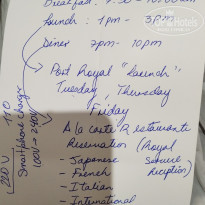 Breakfast: 7:30 - 10:00am
Launch: 1pm - 3pm
Diner 7pm - 10pm
Port Royal "Launch"
Tuesday, Thursday
Friday
A la carte Restaurante
Reservation (Royal
- Japonese Service
- French Reception)
- Italian
- International
220V 110
Smartphone charger
100V → 240V
TopHotels